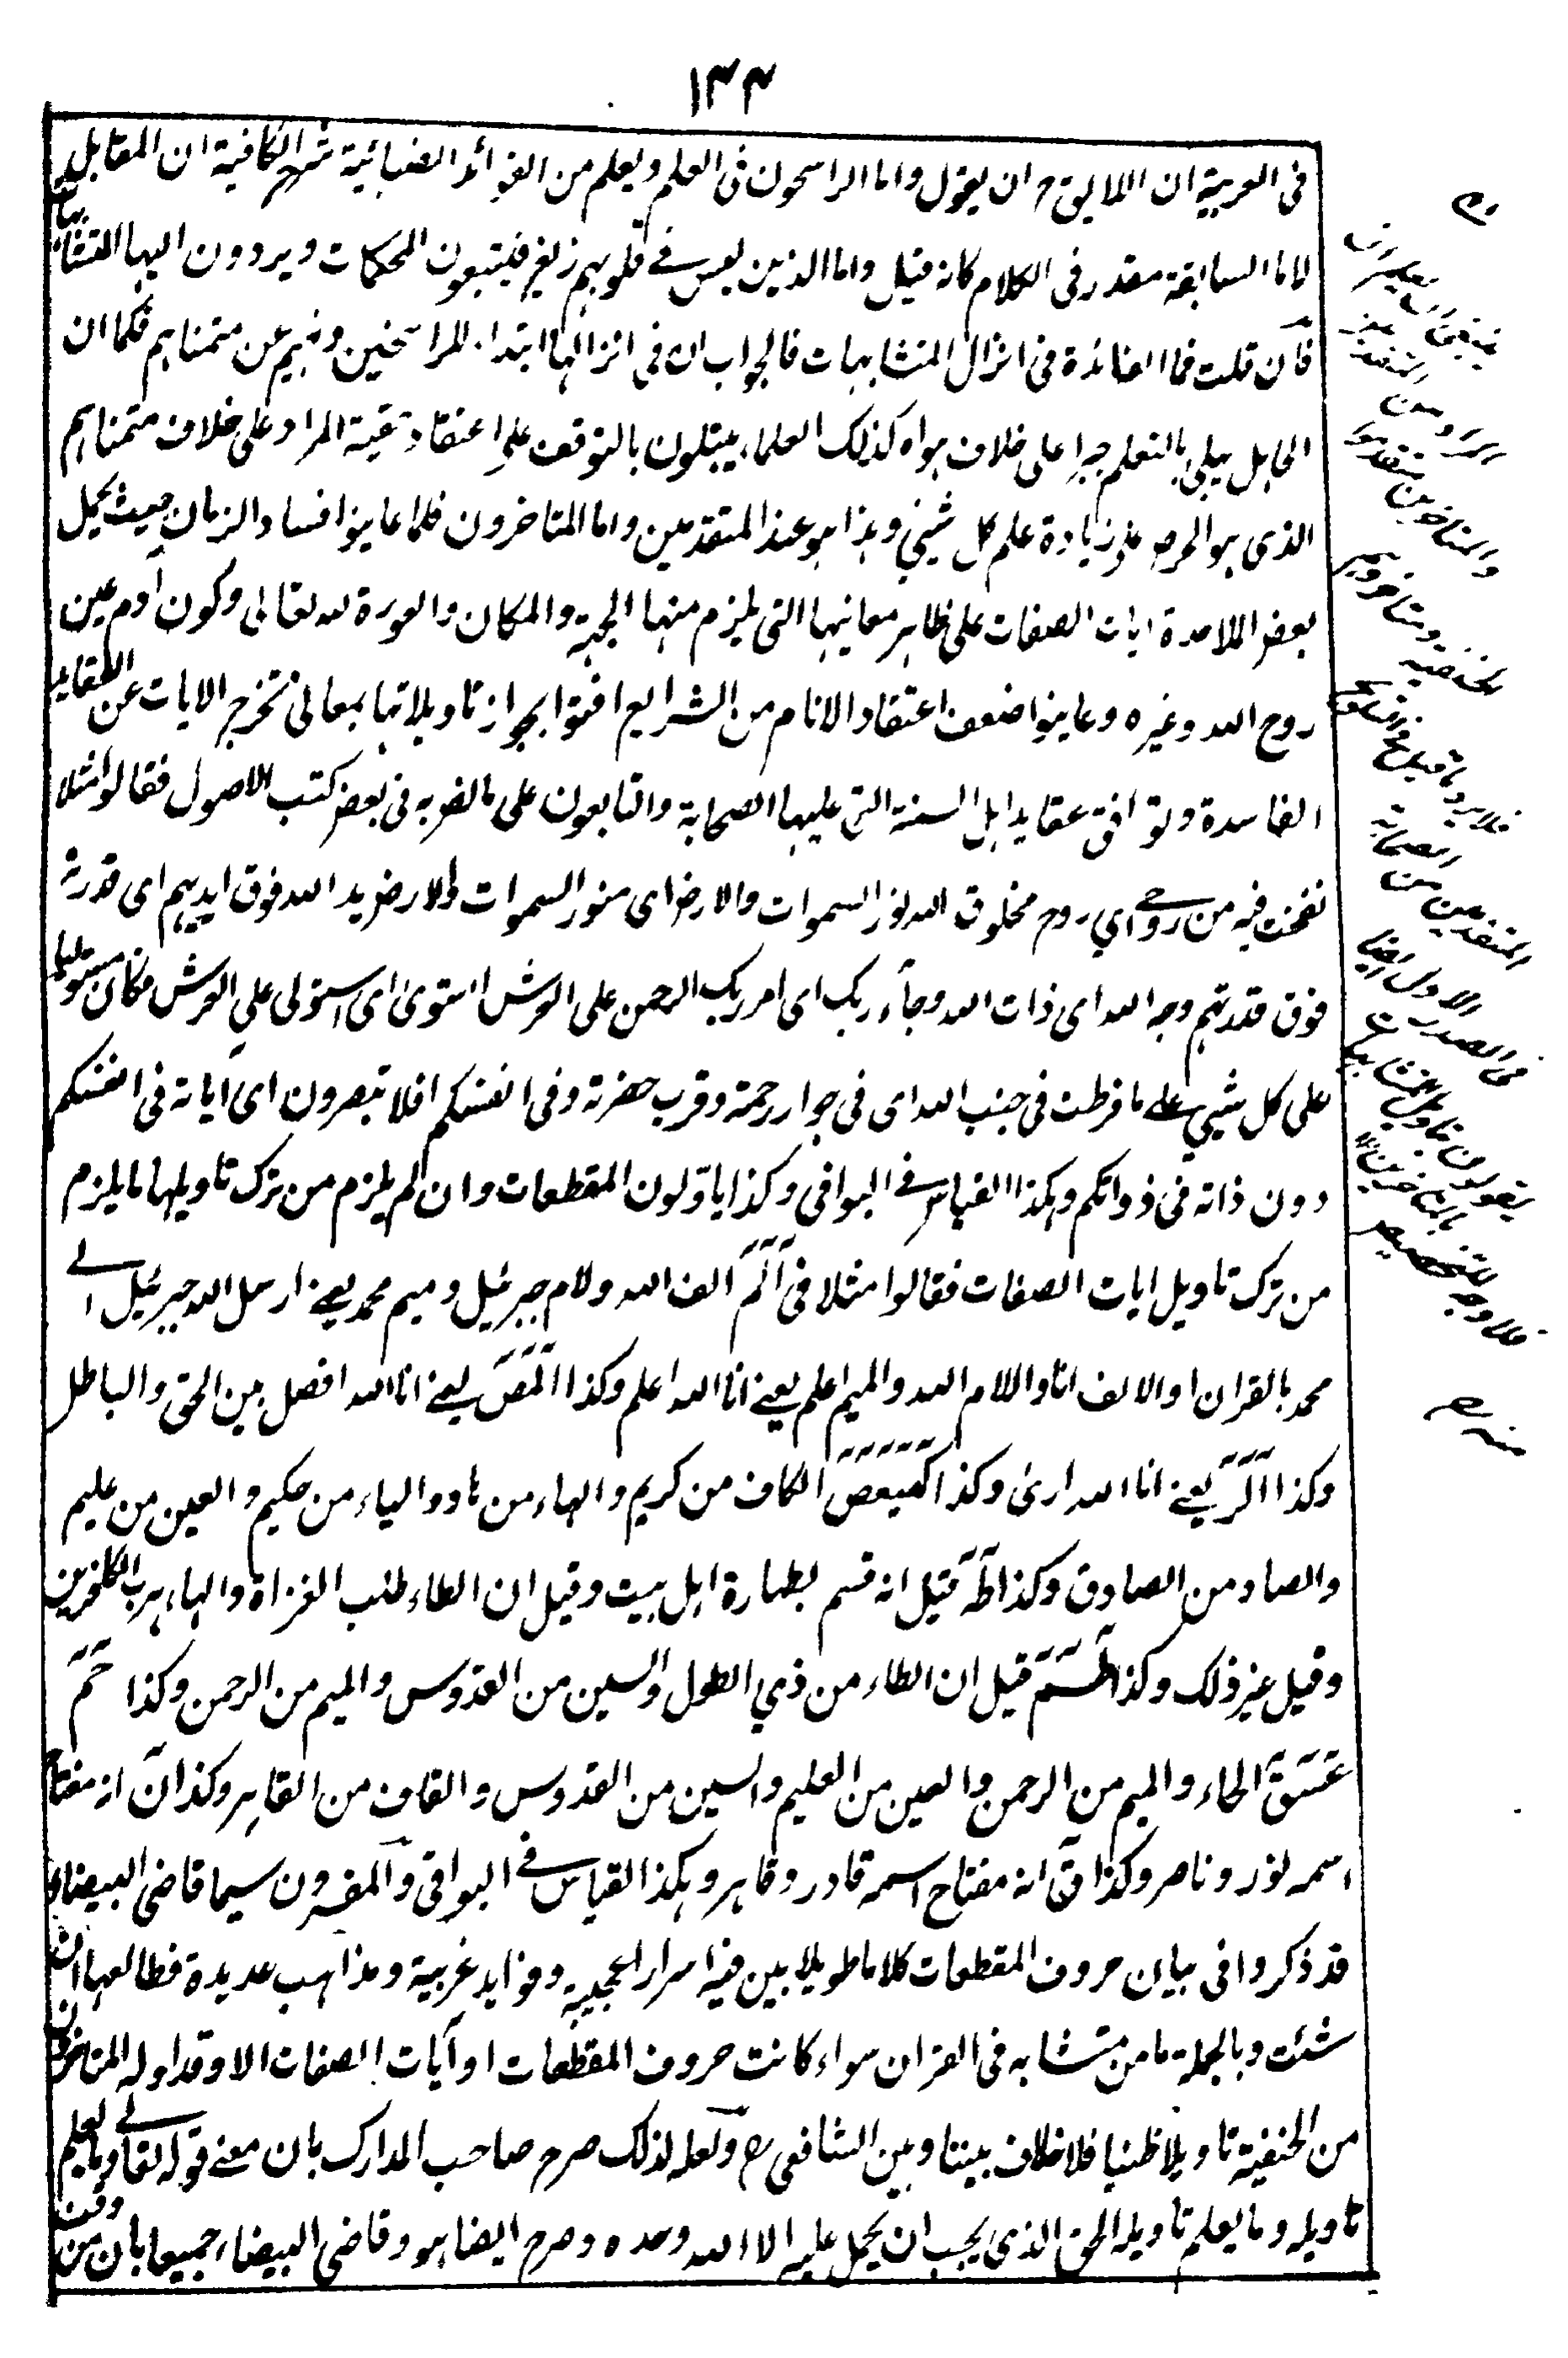 ١٣٣
فى العربية ان اللايق ح ان يقول واما الراسخون فى العلم ويعلم من الفوائد الضيائية شرح الكافية ان المقابل
لاما السابقة مقدر فى الكلام كانه قيل واما الذين ليس فے قلوبهم زيغ فيتبعون المحكمات ويردون اليها المتشابهات
فان قلت فما الفائدة فى انزال المتشابهات فالجواب ان فى انزالها ابتداء للراسخين ومنهم عن متمناهم فكما ان
الجاهل يبلى بالتعلم جبرا على خلاف هواه كذلك العلماء يبتلون بالتوقف على اعتقاد حقية المراد على خلاف متمناهم
الذى هو الحرص على زيادة علم كل شيئ وهذا هو عند المتقدمين واما المتاخرون فلما عاينوا فساد الزمان حيث يحمل
بعض الملاحدة ايات الصفات على ظاهر معانيها التى يلزم منها الجهة والمكان والصورة لله تعالى وكون آدم عين
روح الله وغيره وعاينوا ضعف اعتقاد الانام من الشرايع افتوا بجواز تاويلاتها بمعانى تخرج الايات عن العقايد
الفاسدة وتوافق عقايد اهل السنة التى عليها الصحابة والتابعون على ما نص به فى بعض كتب الاصول فقالوا مثلا
نفخت فيه من روحى اي روح مخلوق الله نور السموات والارض اى منور السموات والارض يد الله فوق ايديهم اى قدرته
فوق قدرتهم وجه الله اى ذات الله وجآء ربك اى امر ربك الرحمن على العرش استوى اى استولى علي العرش فكان مستوليا
على كل شيئ على ما فرطت فى جنب الله اى فى جوار رحمة وقرب حضرته وفى انفسكم افلا تبصرون اى اياته فى انفسكم
دون ذاته فى ذواتكم وهكذا القياس فے البواقى وكذا ياوّلون المقطعات وان لم يلزم من ترك تاويلها ما يلزم
من ترك تاويل ايات الصفات فقالوا مثلا فى الٓمٓ الف الله ولام جبرئيل وميم محمد يعنے ارسل الله جبرئيل الے
محمد بالقران او الالف انا واللام الله والميم اعلم يعنے انا الله اعلم وكذا الٓمٓصٓ يعنے انا الله افصل بين الحق والباطل
وكذا الٓرٓ يعنے انا الله ارى وكذا كٓهٰيٰعٓصٓ الكاف من كريم والهاء من هاد والياء من حكيم والعين من عليم
والصاد من الصادق وكذا طٰهٰ قيل انه قسم بطهارة اهل بيت وقيل ان الطاء طلب الغزاة والهاء هرب الكافرين
وقيل غير ذلك وكذا طٓسٓمٓ قيل ان الطاء من ذي الطول والسين من القدوس والميم من الرحمن وكذا حٓمٓ
عٓسٓقٓ الحاء والميم من الرحمن والعين من العليم والسين من القدوس والقاف من القاهر وكذا نٓ انه مفتاح
اسمه نور وناصر وكذا قٓ انه مفتاح اسمه قادر وقاهر وهكذا القياس فے البواقى والمفسرون سيما قاضى البيضاوى
قد ذكروا فى بيان حروف المقطعات كلاما طويلا بين فيه اسرار عجيبة وفوايد غريبة ومذاهب عديدة فطالعها ان
شئت وبالجملة ما من متشابه فى القران سواء كانت حروف المقطعات او آيات الصفات الا وقد اوله المتاخرون
من الحنفية تاويلا ظنيا فلا خلاف بيننا وبين الشافعى رح ولعله لذلك صرح صاحب المدارك بان معنے قوله تعالے وما يعلم
تاويله وما يعلم تاويله الحق الذى يجب ان يحمل عليه الا الله وحده وصرح ايضا هو وقاضى البيضاء جميعا بان من وقف
المتقدمين من
الصحابة
فلا وجه للتخصيص
منه